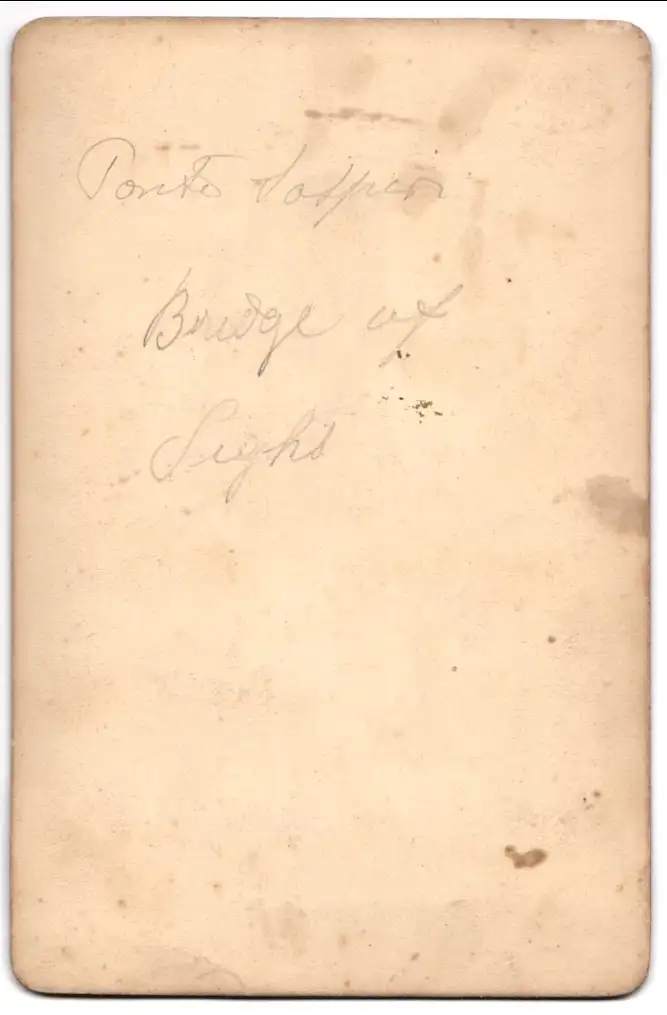 Ponte Sospiri
Bridge of
Sighs